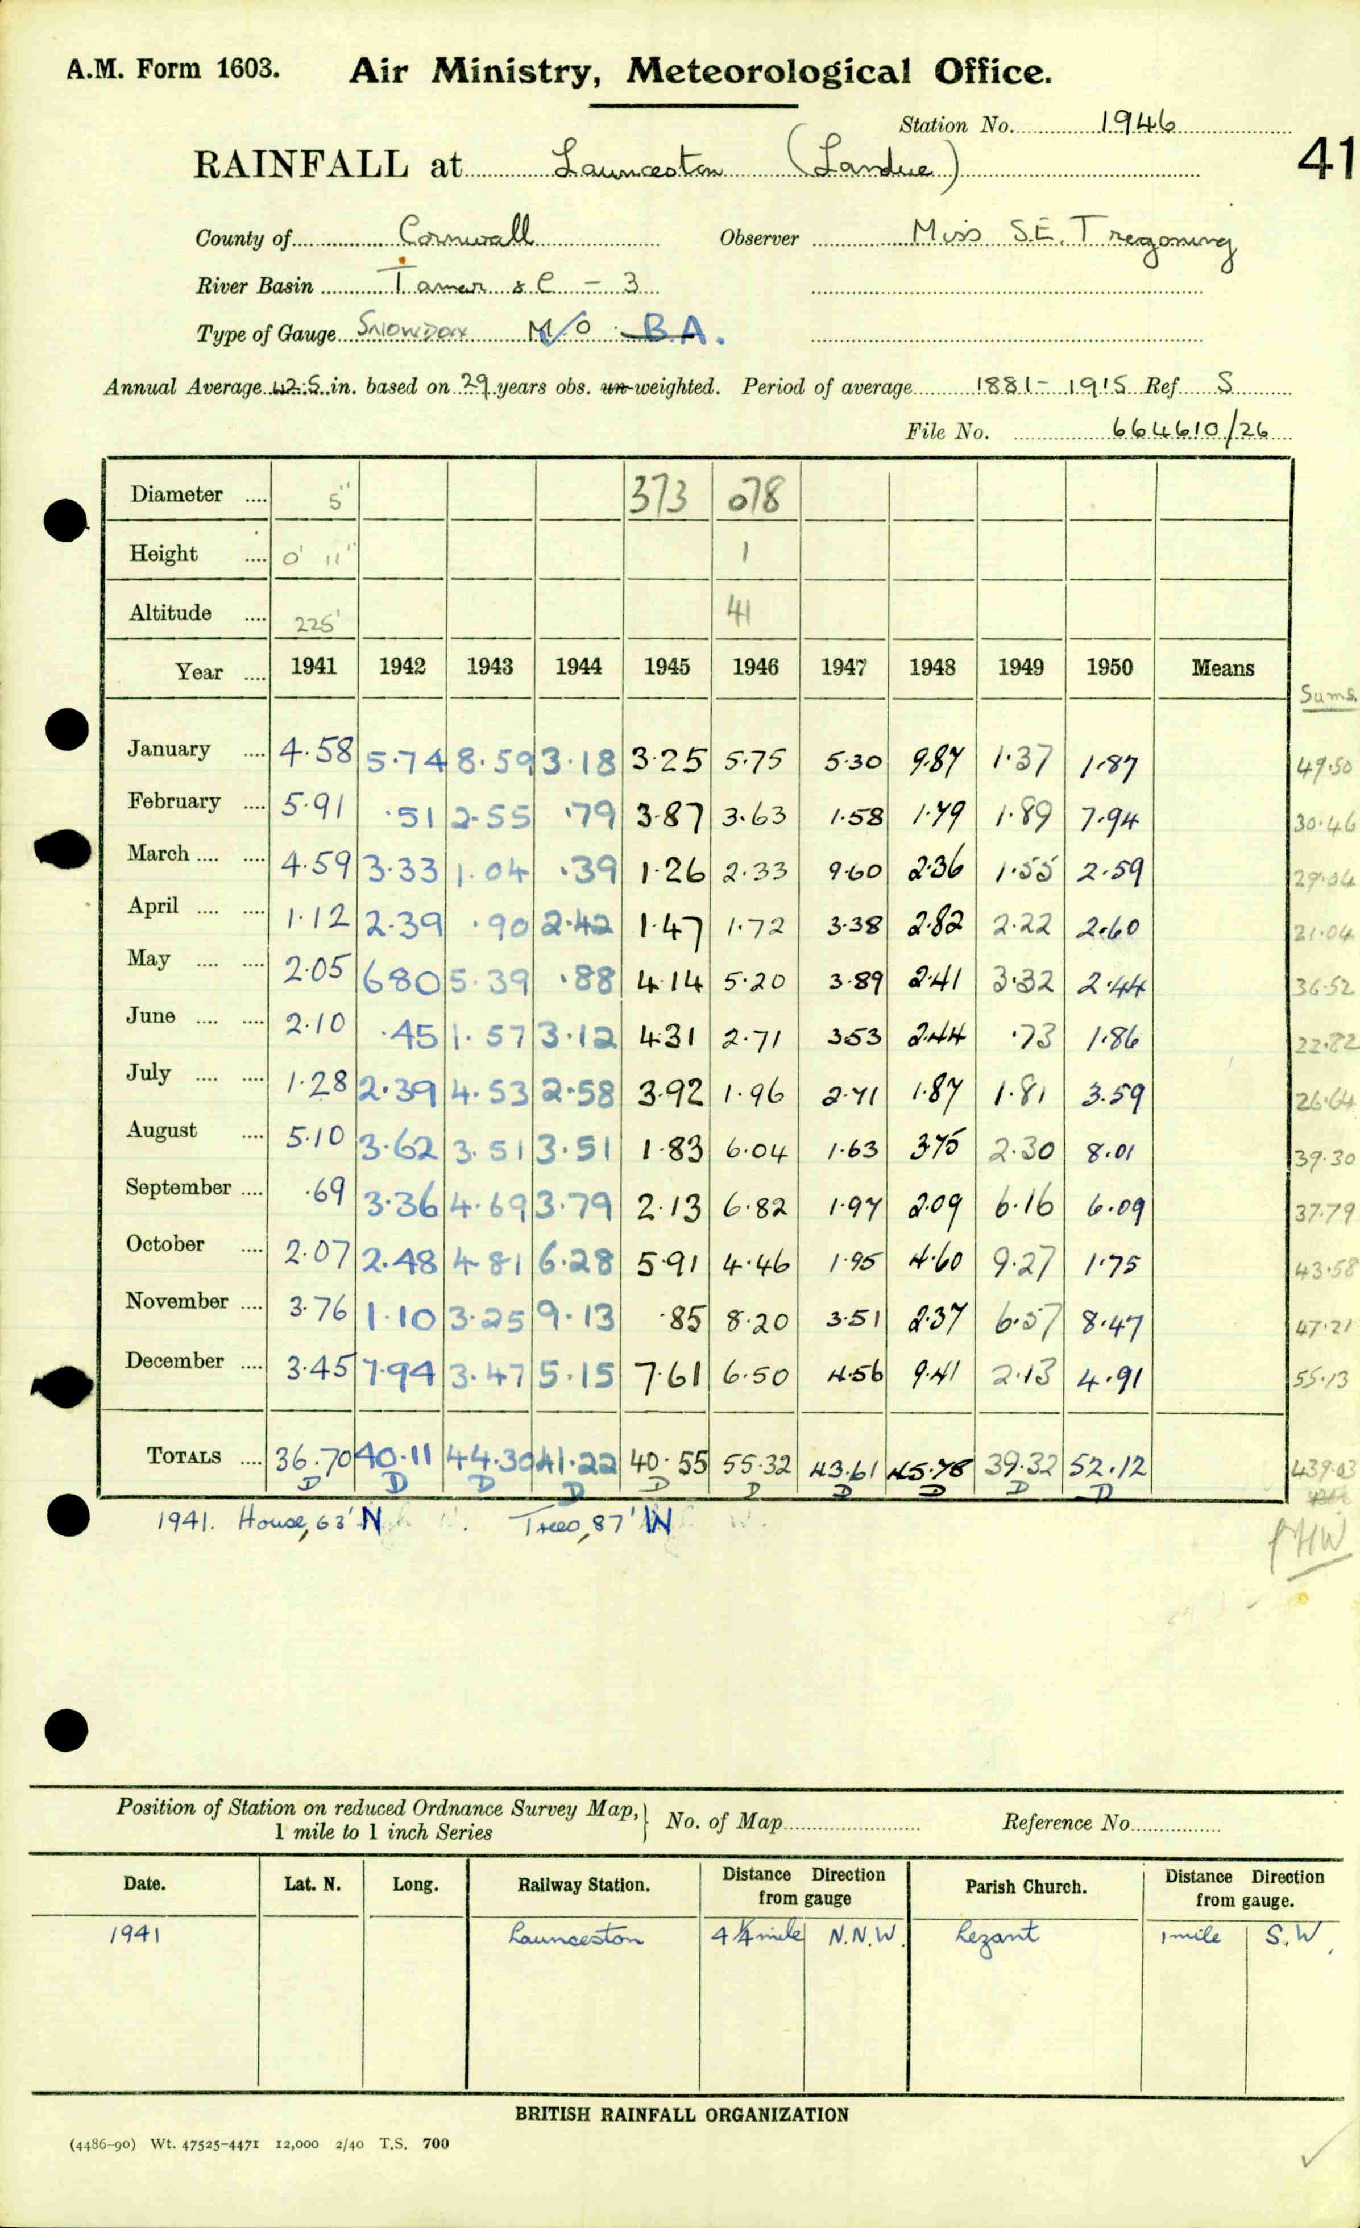 A.M. Form 1603. Air Ministry, Meteorological Office.
Station No. 1946
41
RAINFALL at Launceston (Landue)
County of Cornwall Observer Miss S.E. Tregoning
River Basin Tamar &c - 3
Type of Gauge Snowdon M/O B.A.
Annual Average 42.5 in. based on 29 years obs. un-weighted. Period of average 1881-1915 Ref S
File No. 664610/26
Diameter .... 5" 373 078
Height .... 0' 11" 1
Altitude .... 225' 41
Year .... 1941 1942 1943 1944 1945 1946 1947 1948 1949 1950 Means Sums
January .... 4.58 5.74 8.59 3.18 3.25 5.75 5.30 9.87 1.37 1.87 49.50
February .... 5.91 .51 2.55 .79 3.87 3.63 1.58 1.79 1.89 7.94 30.46
March .... .... 4.59 3.33 1.04 .39 1.26 2.33 9.60 2.36 1.55 2.59 29.04
April .... .... 1.12 2.39 .90 2.42 1.47 1.72 3.38 2.82 2.22 2.60 21.04
May .... .... 2.05 6.80 5.39 .88 4.14 5.20 3.89 2.41 3.32 2.44 36.52
June .... .... 2.10 .45 1.57 3.12 4.31 2.71 3.53 2.44 .73 1.86 22.82
July .... .... 1.28 2.39 4.53 2.58 3.92 1.96 2.71 1.87 1.81 3.59 26.64
August .... 5.10 3.62 3.51 3.51 1.83 6.04 1.63 3.75 2.30 8.01 39.30
September .... .69 3.36 4.69 3.79 2.13 6.82 1.97 2.09 6.16 6.09 37.79
October .... 2.07 2.48 4.81 6.28 5.91 4.46 1.95 4.60 9.27 1.75 43.58
November .... 3.76 1.10 3.25 9.13 .85 8.20 3.51 2.37 6.57 8.47 47.21
December .... 3.45 7.94 3.47 5.15 7.61 6.50 4.56 9.41 2.13 4.91 55.13
TOTALS .... 36.70 40.11 44.30 41.22 40.55 55.32 43.61 45.78 39.32 52.12 439.03
D D D D D D D D D D
1941. House, 63' N Trees, 87' W
Position of Station on reduced Ordnance Survey Map, 1 mile to 1 inch Series } No. of Map Reference No.
Date. Lat. N. Long. Railway Station. Distance Direction from gauge Parish Church. Distance Direction from gauge.
1941 Launceston 4 1/4 mile N.N.W. Lezant 1 mile S.W.
BRITISH RAINFALL ORGANIZATION
(4486-90) Wt. 47525-4471 12,000 2/40 T.S. 700